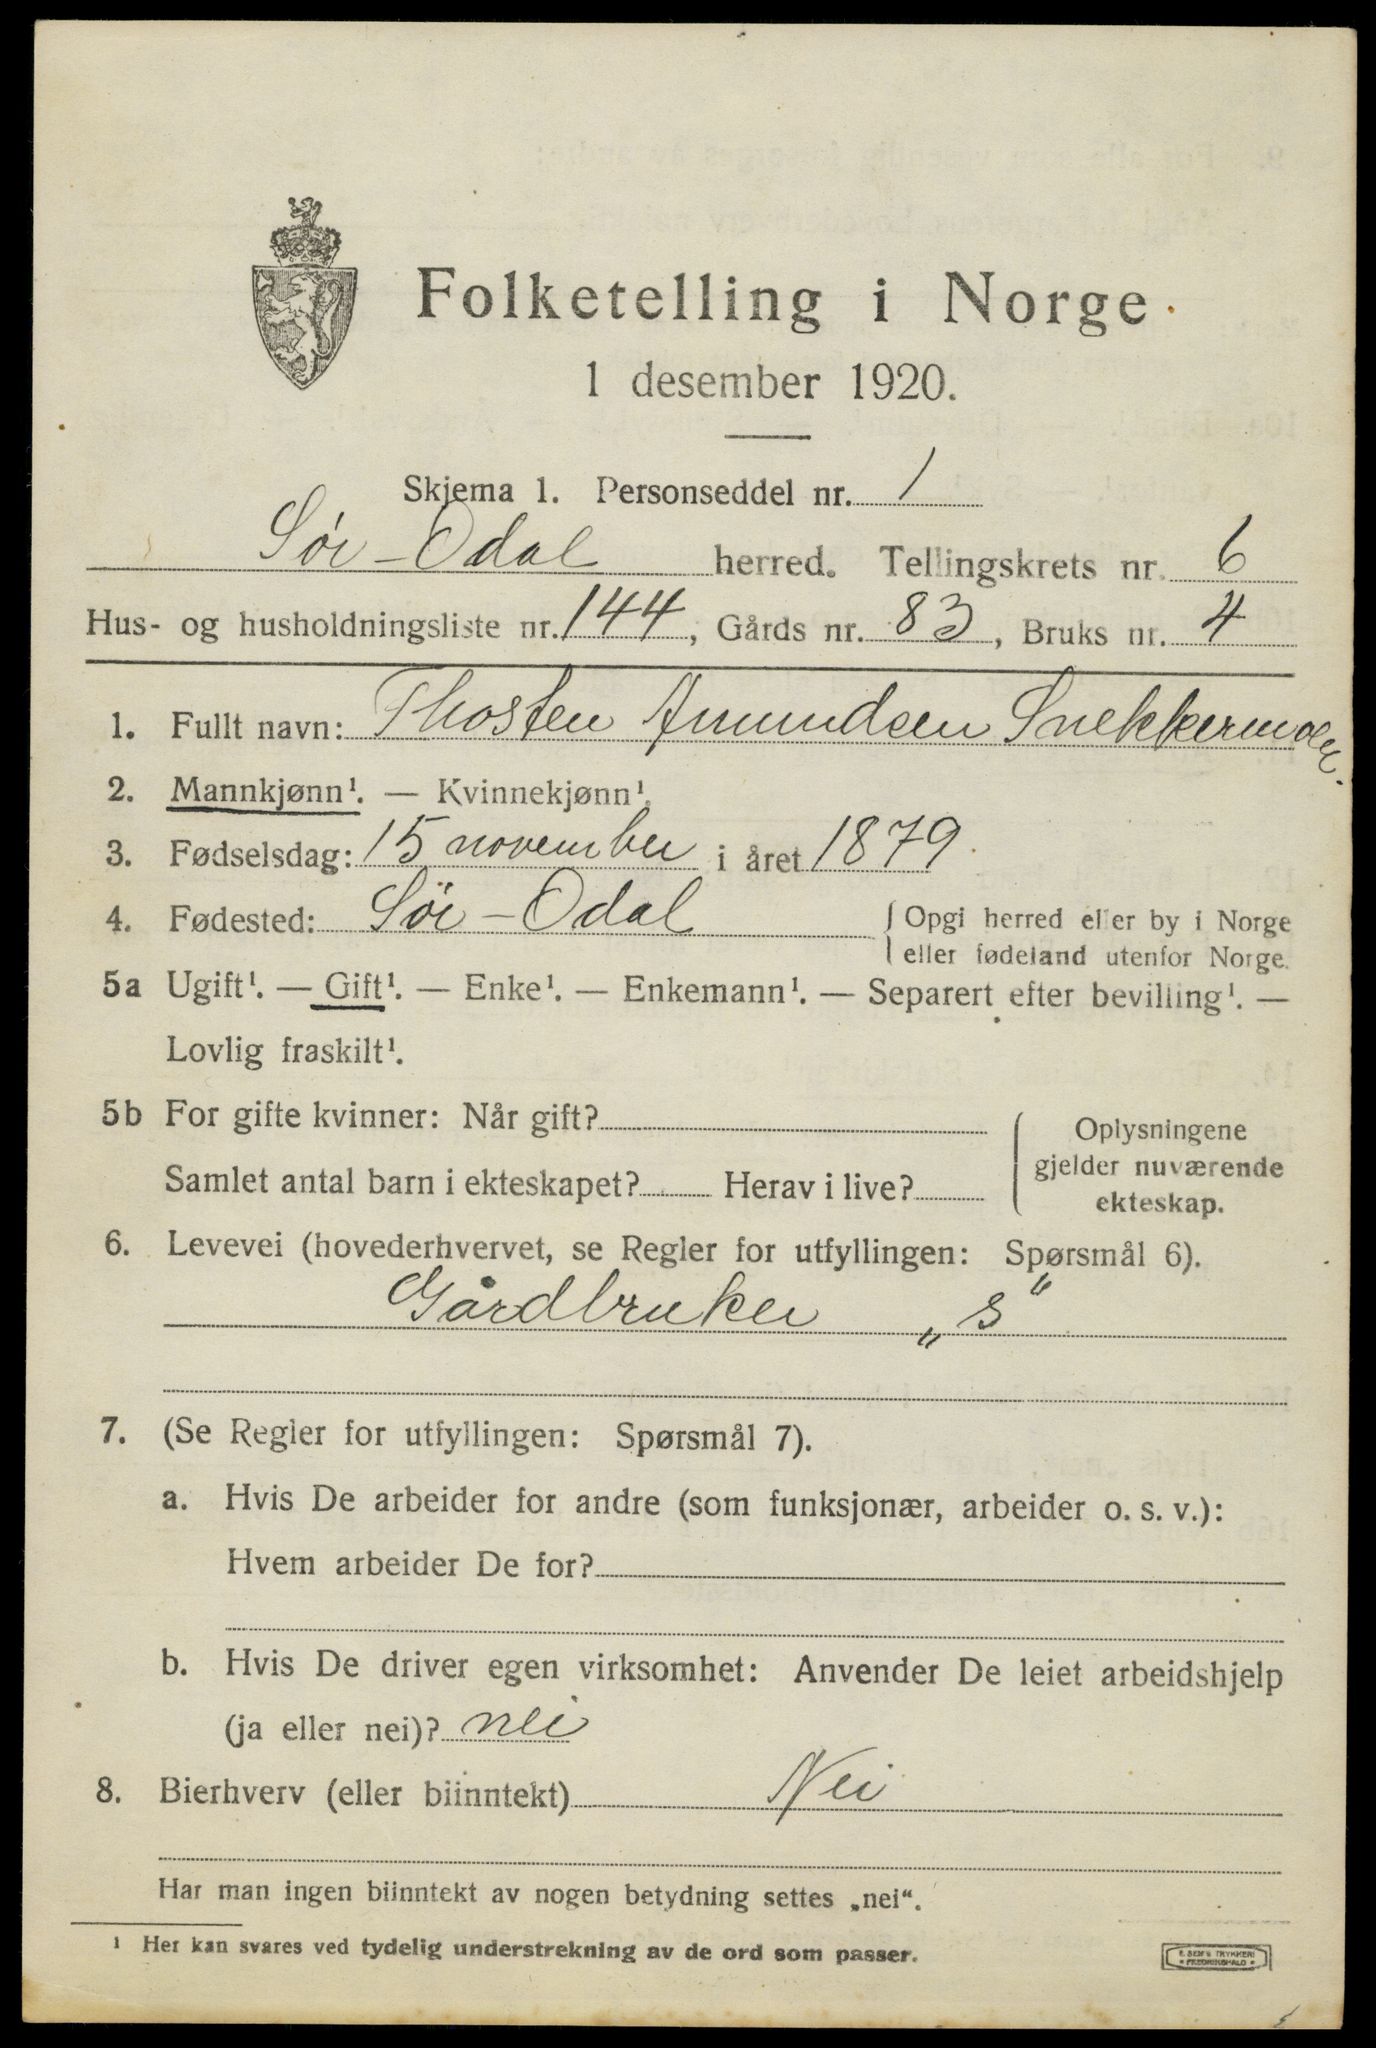 Folketelling i Norge
1 desember 1920.
Skjema 1. Personseddel nr. 1
Sör-Odal herred. Tellingskrets nr. 6
Hus- og husholdningsliste nr. 144, Gårds nr. 83, Bruks nr. 4
1. Fullt navn: Thosten Amundsen
2. Mannkjønn¹. — Kvinnekjønn¹.
3. Fødselsdag: 15 november i året 1879
4. Fødested: Sör-Odal { Opgi herred eller by i Norge
eller fødeland utenfor Norge.
5a Ugift¹. — Gift¹. — Enke¹. — Enkemann¹. — Separert efter bevilling¹. —
Lovlig fraskilt¹.
5b For gifte kvinner: Når gift?
Samlet antal barn i ekteskapet? Herav i live?
Oplysningene
gjelder nuværende
ekteskap.
6. Levevei (hovederhvervet, se Regler for utfyllingen: Spørsmål 6).
Gårdbruker „s“
7. (Se Regler for utfyllingen: Spørsmål 7).
a. Hvis De arbeider for andre (som funksjonær, arbeider o. s. v.):
Hvem arbeider De for?
b. Hvis De driver egen virksomhet: Anvender De leiet arbeidshjelp
(ja eller nei)? nei
8. Bierhverv (eller biinntekt) Nei
Har man ingen biinntekt av nogen betydning settes „nei“.
¹ Her kan svares ved tydelig understrekning av de ord som passer.
E. SEM'S TRYKKERI
FREDRIKSHALD